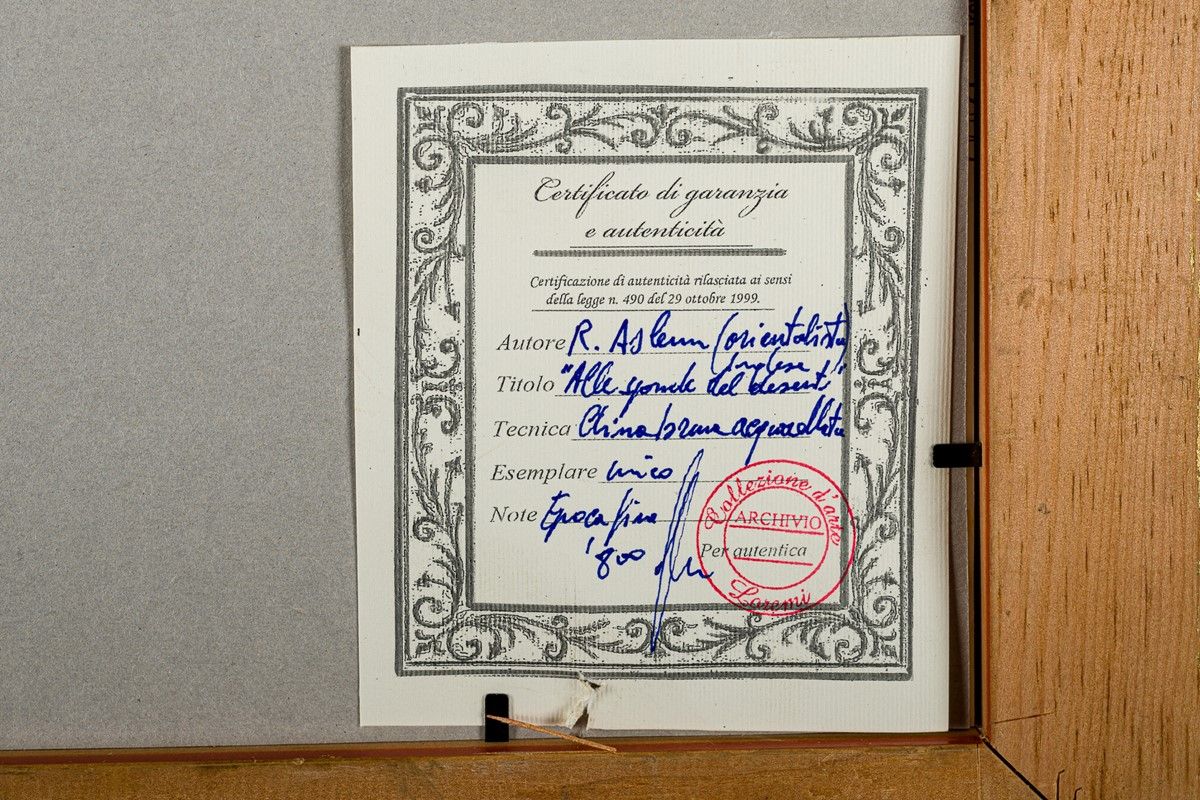 Certificato di garanzia
e autenticità
Certificazione di autenticità rilasciata ai sensi
della legge n. 490 del 29 ottobre 1999.
Autore R. (orientalista
inglese)
Titolo "Alle del
Tecnica China bruna acquarellata
Esemplare unico
Note Epoca fine
'800
Collezione d'arte
ARCHIVIO
Per autentica
Laremi